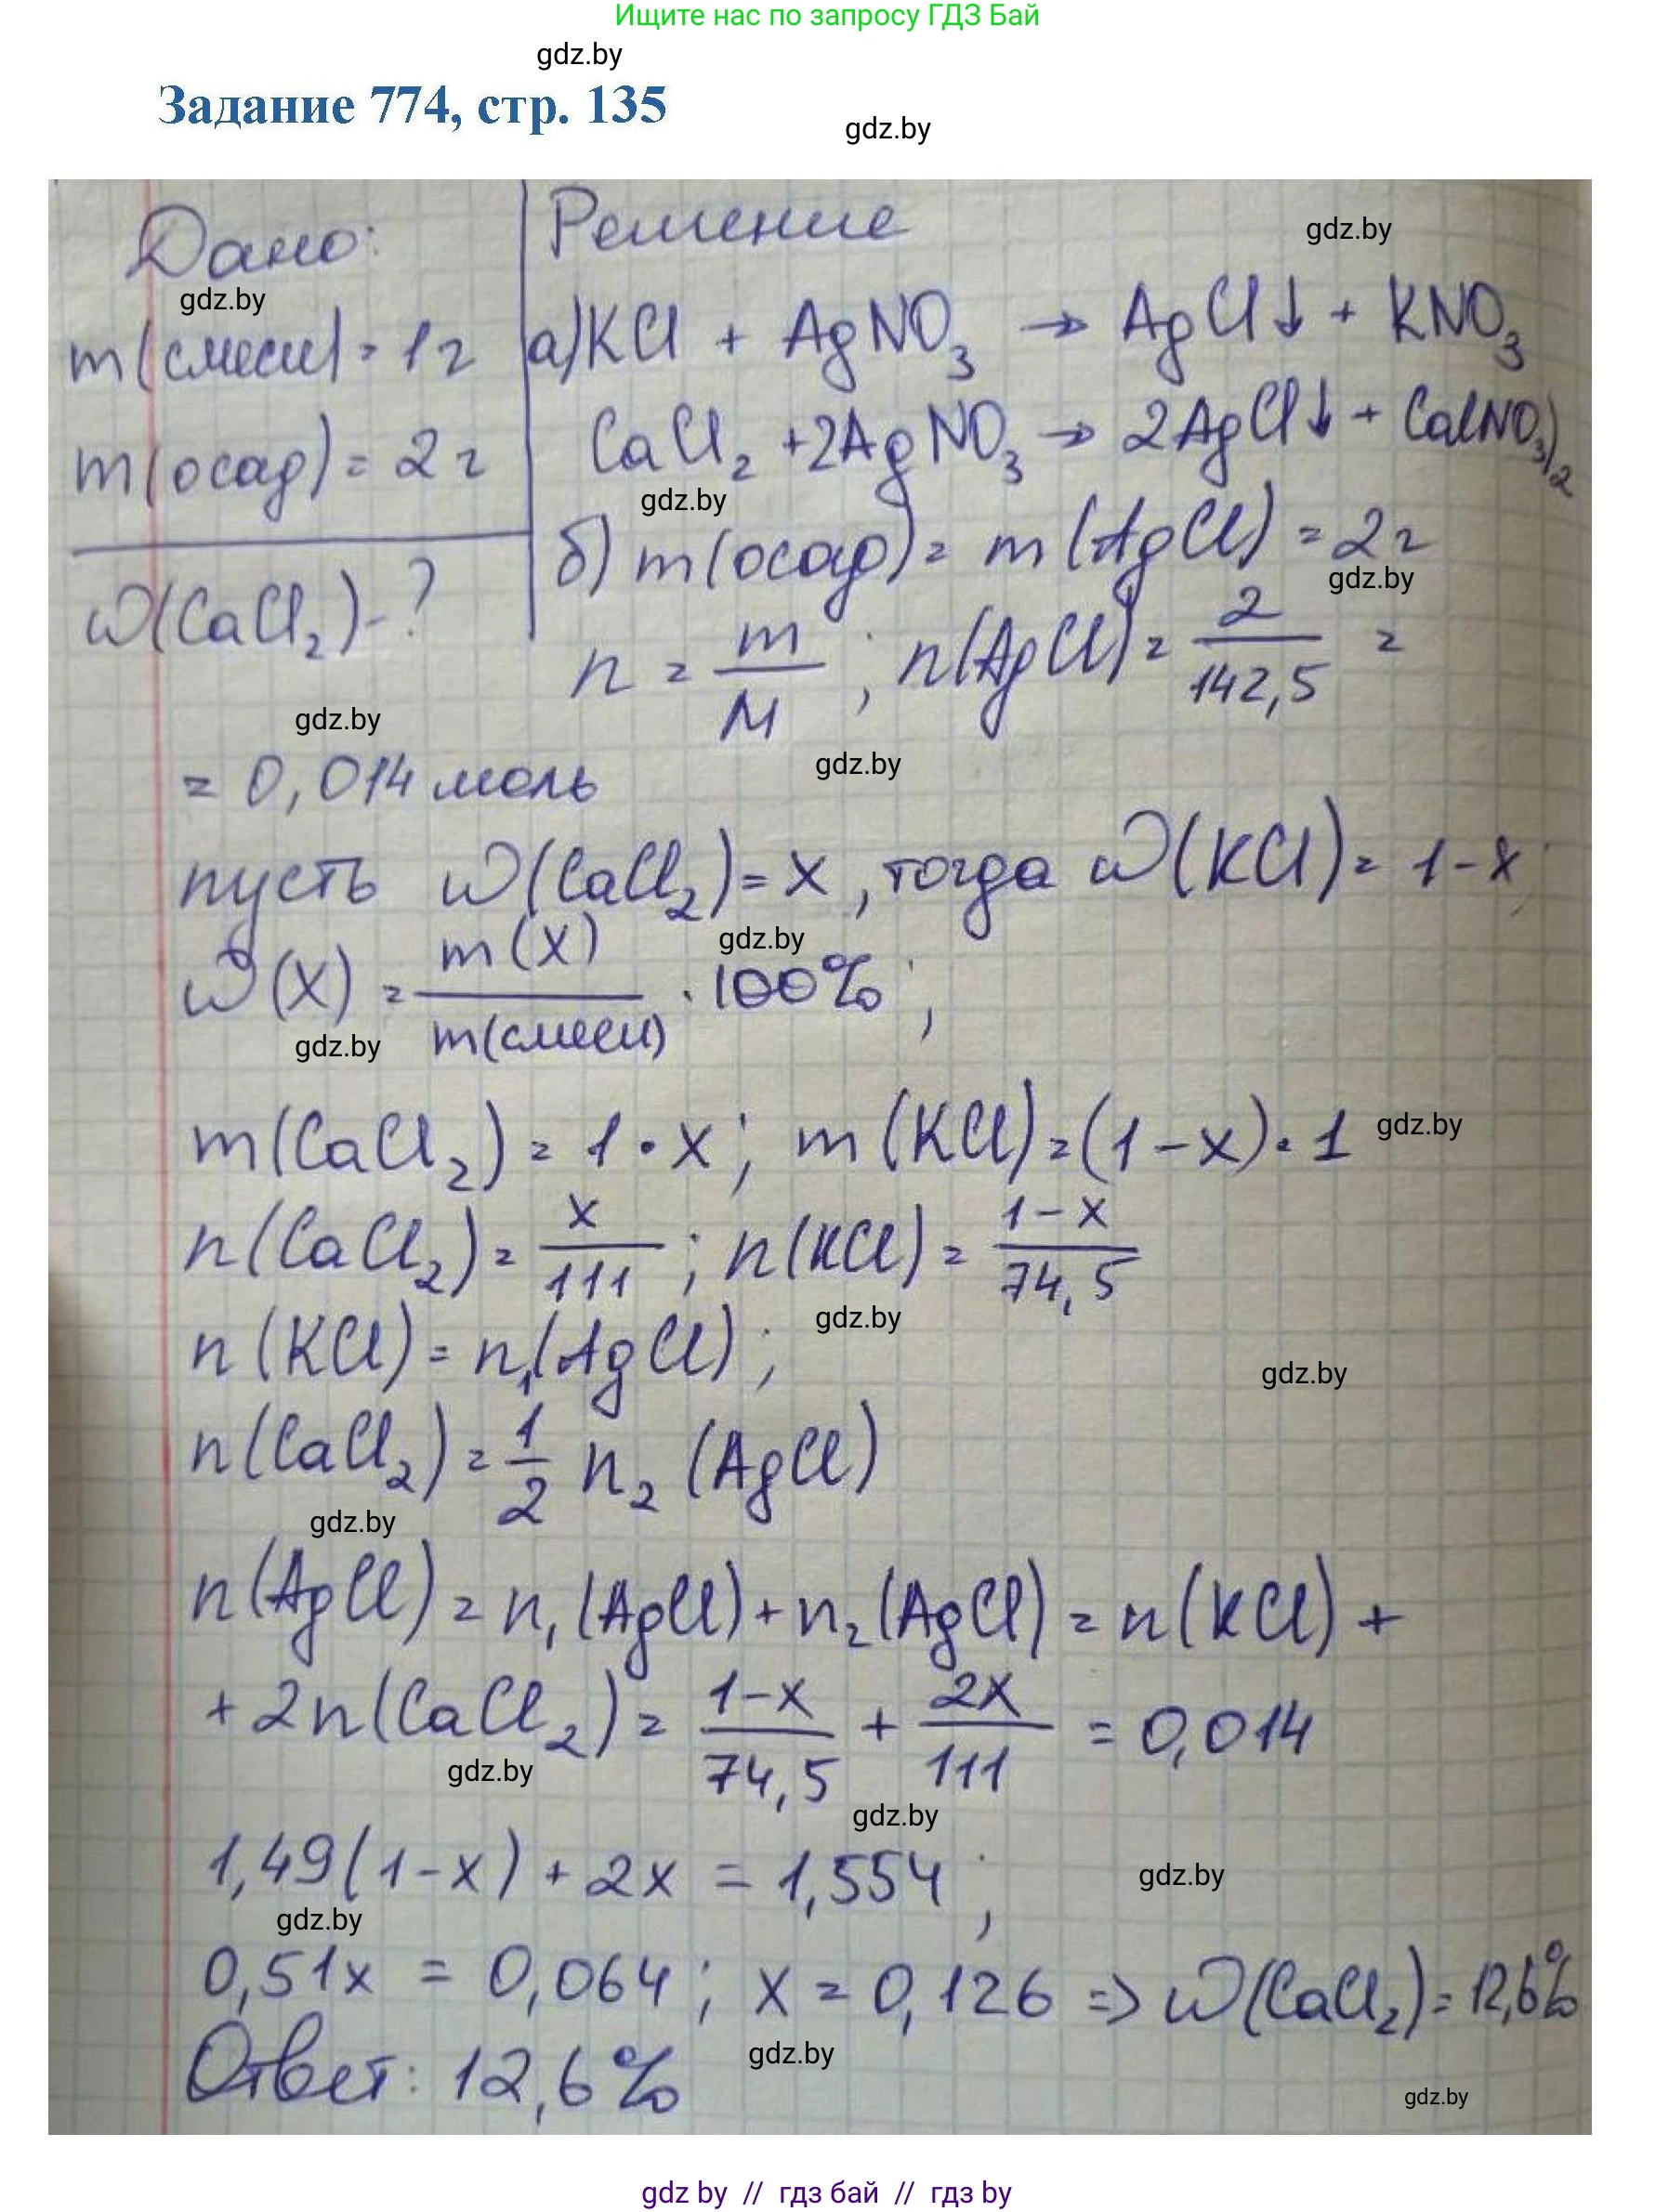 Ищите нас по запросу ГДЗ Бай
gdz.by
Задание 774, стр. 135
gdz.by
Дано:
Решение
gdz.by
gdz.by
m(смеси) = 1г
а) KCl + AgNO₃ → AgCl↓ + KNO₃
m(осад) = 2г
CaCl₂ + 2AgNO₃ → 2AgCl↓ + Ca(NO₃)₂
gdz.by
б) m(осад) = m(AgCl) = 2г
gdz.by
ω(CaCl₂) - ?
n = m/M ; n(AgCl) = 2/142,5 =
gdz.by
gdz.by
= 0,014 моль
пусть ω(CaCl₂) = x, тогда ω(KCl) = 1-x;
gdz.by
ω(X) = m(X)/m(смеси) · 100% ;
gdz.by
m(CaCl₂) = 1 · x; m(KCl) = (1-x) · 1
gdz.by
n(CaCl₂) = x/111 ; n(KCl) = 1-x/74,5
gdz.by
n(KCl) = n₁(AgCl);
gdz.by
n(CaCl₂) = 1/2 n₂(AgCl)
gdz.by
n(AgCl) = n₁(AgCl) + n₂(AgCl) = n(KCl) +
+ 2n(CaCl₂) = 1-x/74,5 + 2x/111 = 0,014
gdz.by
gdz.by
1,49(1-x) + 2x = 1,554 ;
gdz.by
gdz.by
0,51x = 0,064 ; x = 0,126 => ω(CaCl₂) = 12,6%
Ответ: 12,6%
gdz.by
gdz.by
gdz by // гдз бай // гдз by